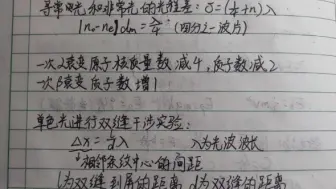 寻常光和非常光的光程差：δ=(1/4+n)λ
|n₀-ne|dm=λ/4 (四分之一波片)
一次α衰变原子核质量数减4，质子数减2
一次β衰变质子数增1
单色光进行双缝干涉实验：
Δx=l/dλ λ为光波波长
↓相邻条纹中心的间距
l为双缝到屏的距离 d为双缝的距离